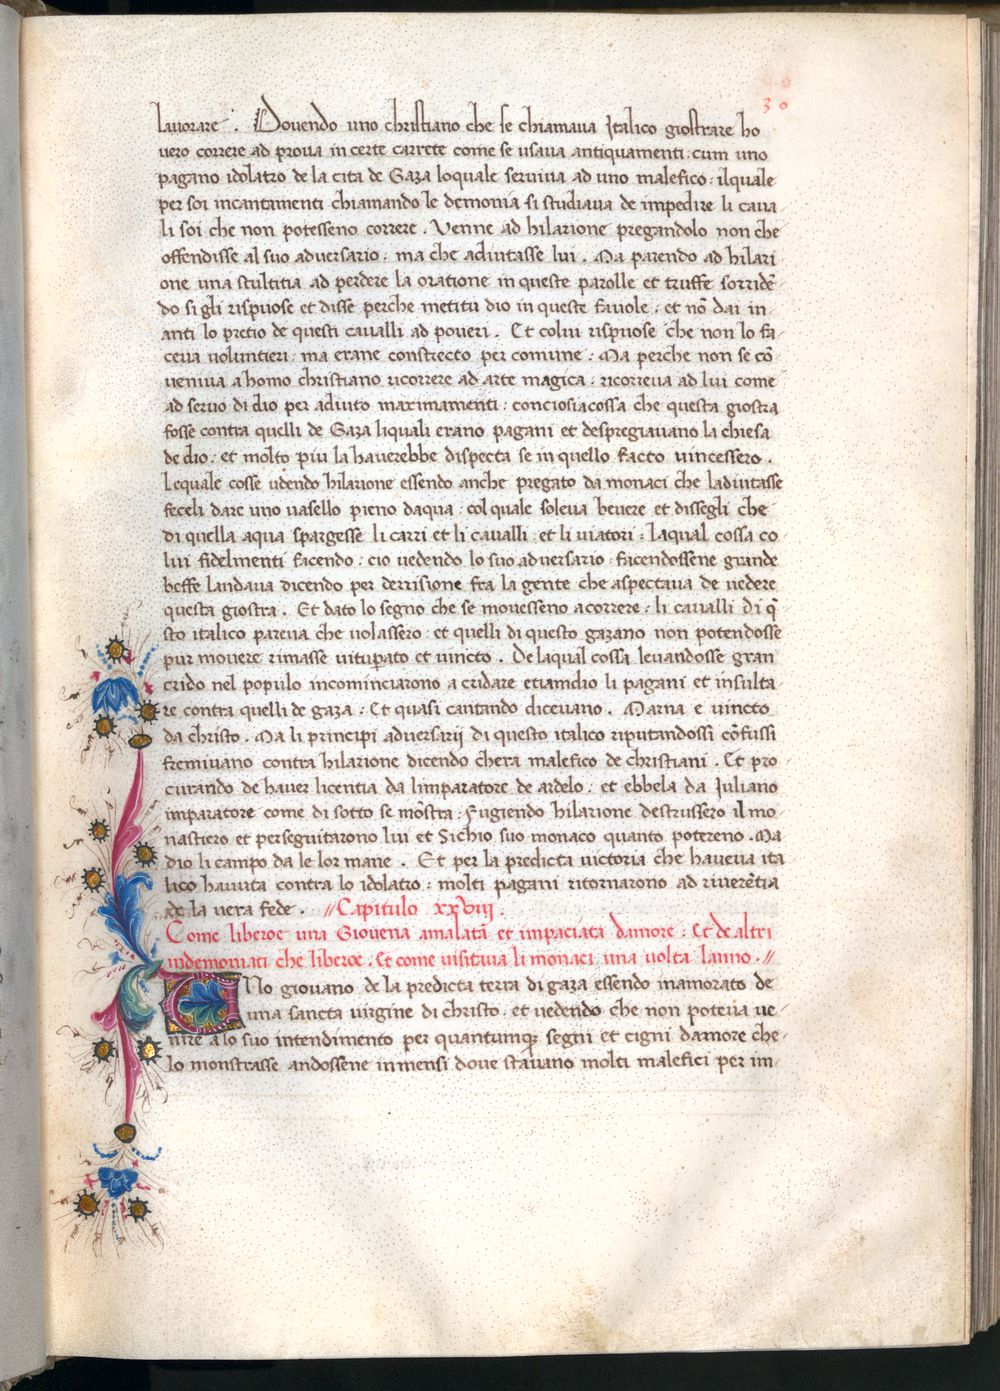 30
lauorare . Douendo uno christiano che se chiamaua Italico giostrare ho
uero correre ad proua in certe carrete come se usaua antiquamenti : cum uno
pagano idolatro de la cita de Gaza loquale seruiua ad uno malefico : ilquale
per soi incantamenti chiamando le demonia si studiaua de impedire li caua
li soi che non potesseno correre . Venne ad hilarione pregandolo non che
offendisse al suo aduersario : ma che adiutasse lui . Ma parendo ad hilari
one una stultitia ad perdere la oratione in queste parolle et truffe sorridē
do si gli rispuose et disse perche metitu dio in queste fauole : et nō dai in
anti lo pretio de questi caualli ad poueri . Et colui rispuose che non lo fa
ceua uoluntieri : ma erane constrecto per comune : Ma perche non se cō
ueniua a homo christiano ricorrere ad arte magica : ricorreua ad lui come
ad seruo di dio per adiuto maximamenti : conciosiacossa che questa giostra
fosse contra quelli de Gaza liquali erano pagani et despregiauano la chiesa
de dio : et molto piu la hauerebbe dispecta se in quello facto uincessero .
Lequale cosse udendo hilarione essendo anche pregato da monaci che ladiutasse
feceli dare uno uasello pieno daqua : col quale soleua beuere et dissegli che
di quella aqua spargesse li carri et li caualli et li uiatori : laqual cossa co
lui fidelmenti facendo : cio uedendo lo suo aduersario facendossene grande
beffe landaua dicendo per derrisione fra la gente che aspectaua de uedere
questa giostra . Et dato lo segno che se mouesseno a correre : li caualli di q̄
sto italico pareua che uolassero : et quelli di questo gazano non potendosse
pur mouere rimasse uitupato et uincto . De laqual cossa leuandosse gran
crido nel populo incominciarono a cridare etiamdio li pagani et insulta
re contra quelli de gaza : Et quasi cantando diceuano . Marna e uincto
da christo . Ma li principi aduersarij di questo italico riputandossi cōfussi
fremiuano contra hilarione dicendo chera malefico de christiani . Et pro
curando de hauer licentia da limparatore de ardelo : et ebbela da Iuliano
imparatore come di sotto se mōstra : Fugiendo hilarione destrussero il mo
nastiero et perseguitarono lui et Sichio suo monaco quanto potereno . Ma
dio li campo da le lor mane . Et per la predicta uictoria che haueua ita
lico hauuta contra lo idolatro : molti pagani ritornarono ad riuerētia
de la uera fede . // Capitulo xxviii .
Come liberoe una Giouena amalata et impaciata damore : Et de altri
indemoniati che liberoe . Et come uisitiua li monaci una uolta lanno . //
UNo giouano de la predicta terra di gaza essendo inamorato de
una sancta uirgine di christo . et uedendo che non poteua ue
nire a lo suo intendimento per quantumq; segni et cigni damore che
lo monstrasse andossene in mensi doue stauano molti malefici per im